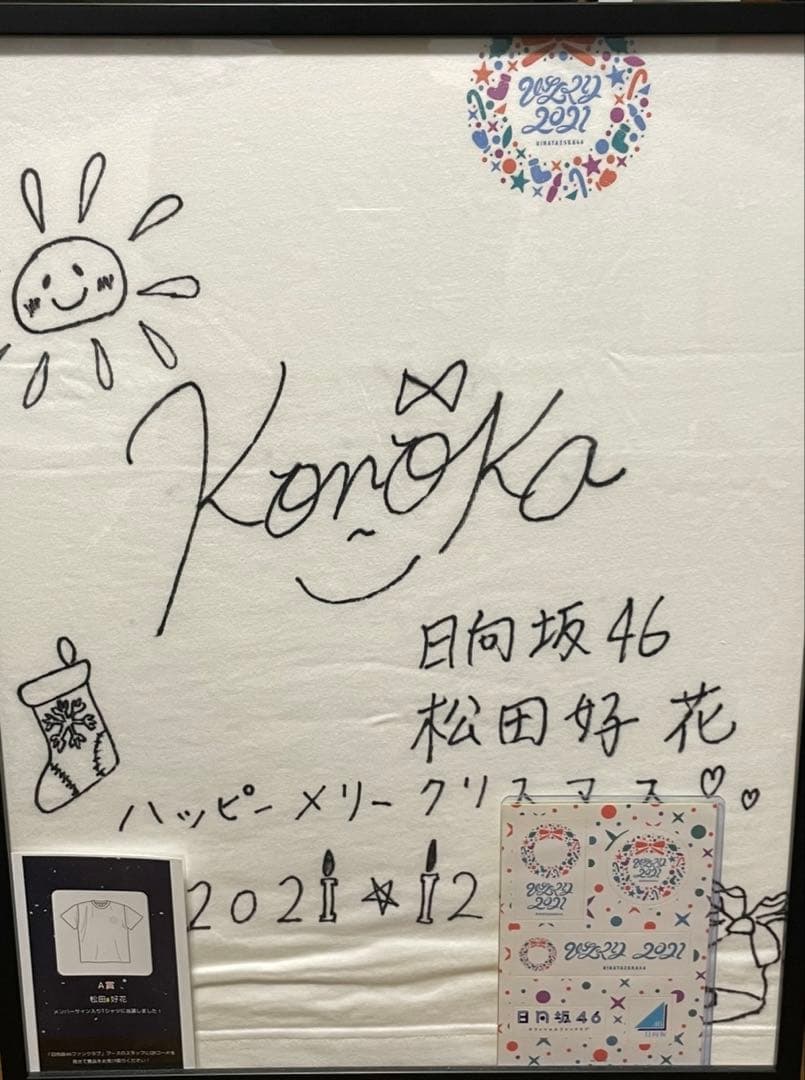 2021
HINATAZAKA46
Konoka
日向坂46
松田好花
ハッピーメリークリスマス♡♡
2021☆12
A賞
松田 好花
メンバーサイン入りTシャツに当選しました！
2021
2021
2021
HINATAZAKA46
日向坂46